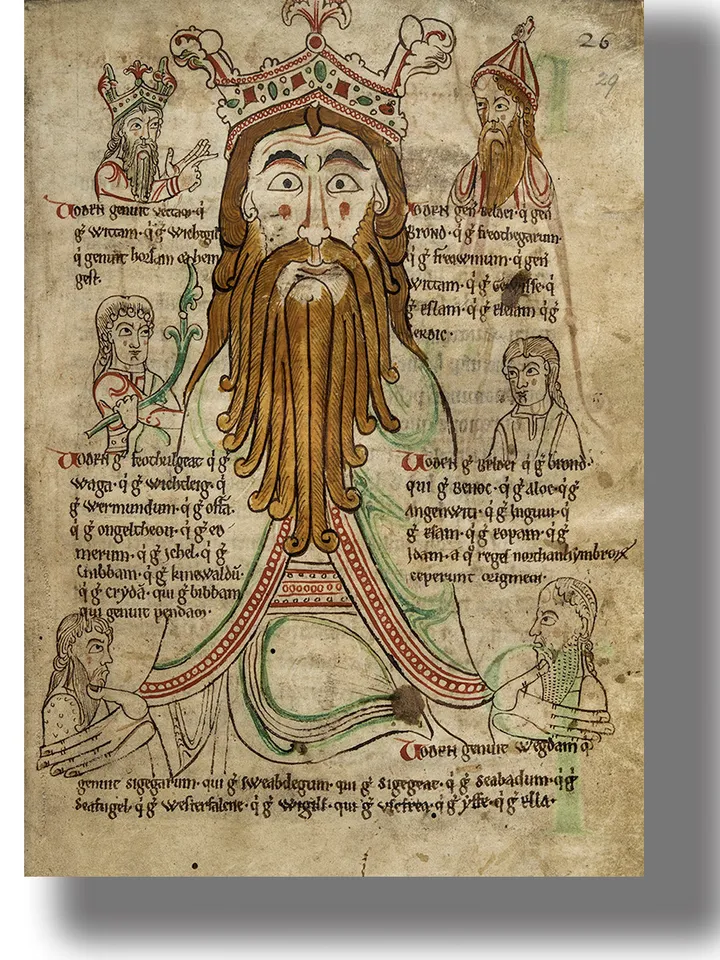 26
29
Woden genuit vectam q̇
ġ wittam · q̇ ġ wichtgil
q̇ genuit horsam & hen
gest.
Woden geñ beldei · q̇ geñ
Brond · q̇ ġ freothegarum ·
q̇ ġ freawinum · q̇ geñ
wittam · q̇ ġ Gewisse · q̇
ġ Eslam · q̇ ġ q̇ġ
cerdic ·
Woden ġ feothulgeat q̇ ġ
waga · q̇ ġ wichtleig · q̇
ġ wermundum · q̇ ġ offa ·
q̇ ġ ongeltheou · q̇ ġ eo
merum · q̇ ġ ichel · q̇ ġ
Cnibbam · q̇ ġ kinewaldū ·
q̇ ġ cryda · qui ġ bibbam
qui genuit pendam ·
Woden ġ beldei q̇ ġ brond ·
qui ġ Benoc · q̇ ġ aloc · q̇ ġ
Angenwit · q̇ ġ Inguui · q̇
ġ Esam · q̇ ġ Eopam · q̇ ġ
Idam · a q̊ reges northanhymbroꝝ
ceperunt originem ·
Woden genuit wegdam q̇
genuit sigegarum · qui ġ sweabdegum · qui ġ sigegeat · q̇ ġ seabadum · q̇ ġ
seafugel · q̇ ġ westerfalene · q̇ ġ wigils · qui ġ uscfrea · q̇ ġ yffe · q̇ ġ Ella ·